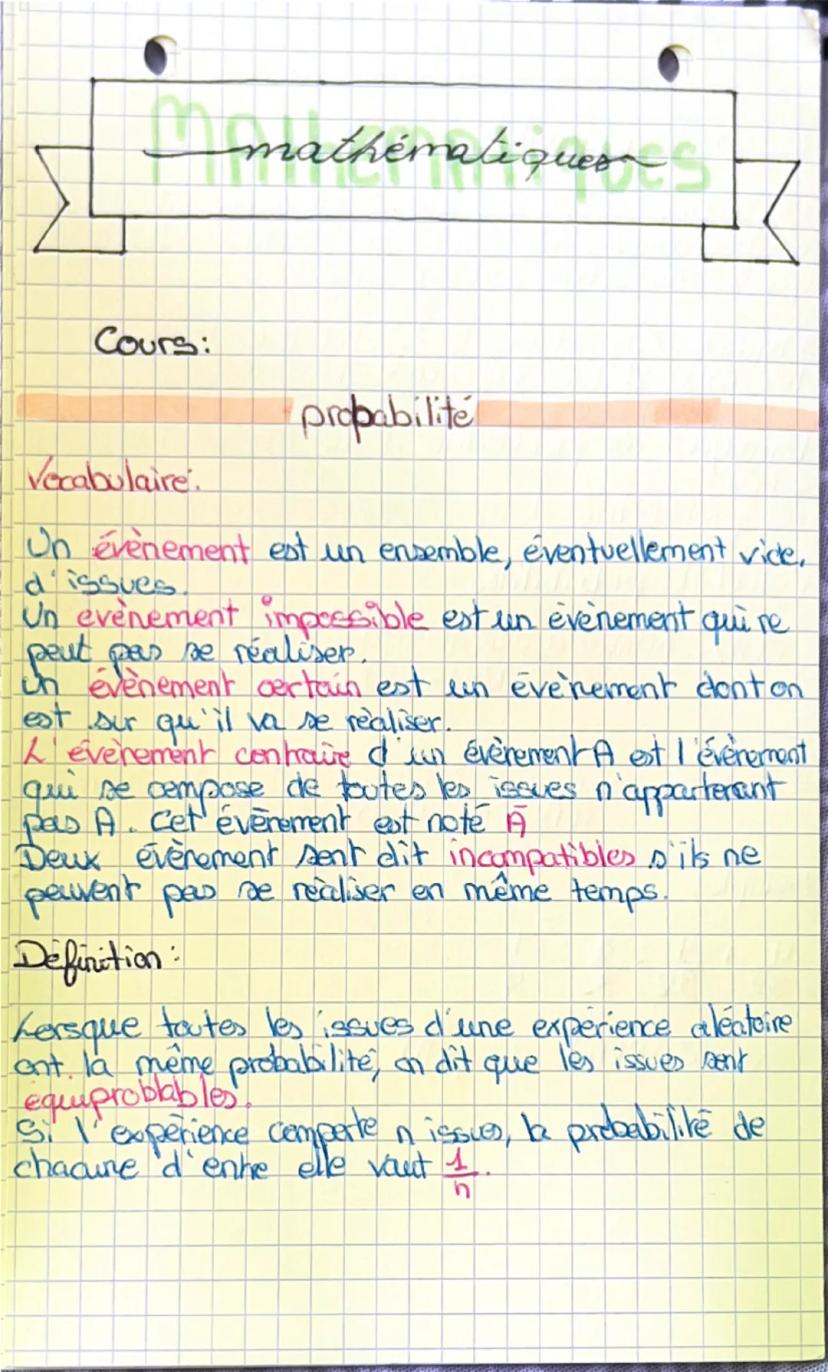 Mathématiques
mathématiques
Cours:
probabilité
Vocabulaire:
Un évènement est un ensemble, éventuellement vide,
d'issues.
Un evènement impossible est un évènement qui ne
peut pas se réaliser.
Un évènement certain est un évènement dont on
est sur qu'il va se réaliser.
L'évènement contraire d'un évènement A est l'évènement
qui se compose de toutes les issues n'appartenant
pas A. Cet évènement est noté Ā
Deux évènement sont dit incompatibles s'ils ne
peuvent pas se réaliser en même temps.
Définition:
Lorsque toutes les issues d'une expérience aléatoire
ont la même probabilité, on dit que les issues sont
équiproblables.
Si l'expérience comporte n issues, la probabilité de
chacune d'entre elle vaut 1/n.